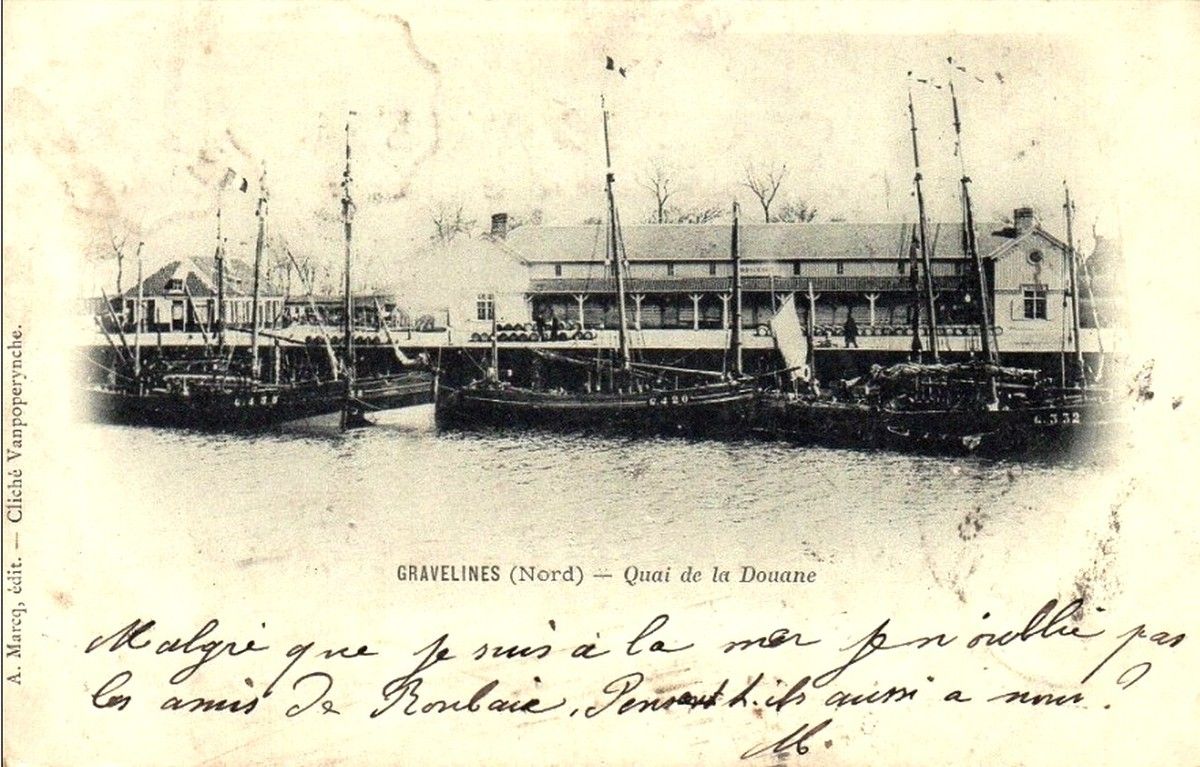 G.420
G.332
GRAVELINES (Nord) — Quai de la Douane
A. Marcq, édit. — Cliché Vanpoperynche.
Malgré que je suis à la mer je n'oublie pas
les amis de Roubaix. Pensent-ils aussi a nous?
M.